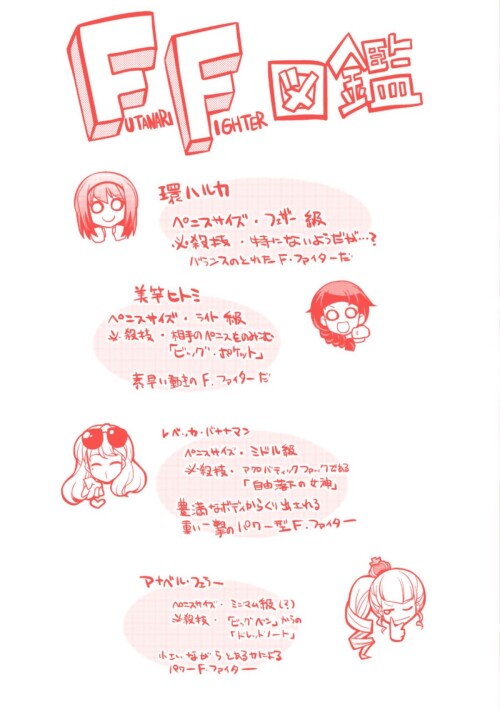 FUTANARI FIGHTER 図鑑
環ハルカ
ペニスサイズ・フェザー級
必殺技・特にないようだが…?
バランスのとれたF.ファイターだ
美竿ヒトミ
ペニスサイズ・ライト級
必殺技・相手のペニスをのみこむ
「ビッグ・ポケット」
素早い動きのF.ファイターだ
レベッカ・バナナマン
ペニスサイズ・ミドル級
必殺技・アクロバティックファックである
「自由落下の女神」
豊満なボディからくり出される
重い一撃のパワー型F.ファイター
アナベル・フェラー
ペニスサイズ・ミニマム級(?)
必殺技・「ビッグベン」からの
「ドレッドノート」
小さいながら
パワーF.ファイター